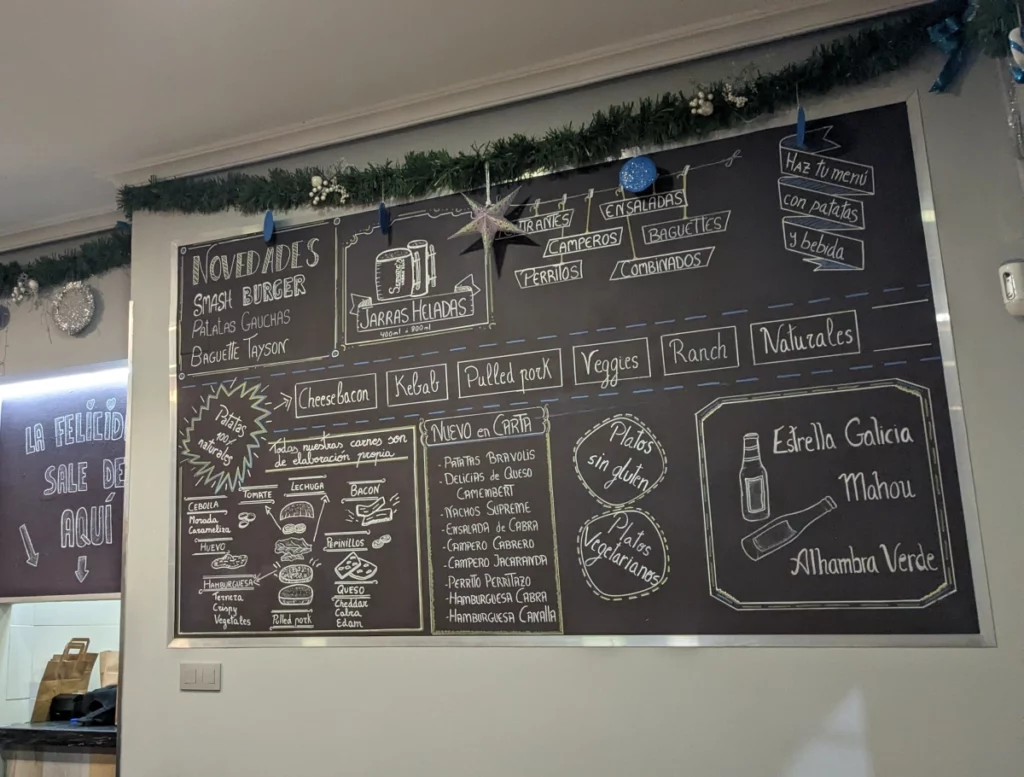 NOVEDADES
SMASH BURGER
PATATAS GAUCHAS
BAGUETTE TAYSON
JARRAS HELADAS
400ml - 800ml
ENSALADAS
CAMPEROS
BAGUETTES
PERRITOS
COMBINADOS
HAZ tu menú
con patatas
y bebida
Cheesebacon
Kebab
Pulled pork
Veggies
Ranch
Naturales
Patatas
100%
naturales
Todas nuestras carnes son
de elaboración propia
CEBOLLA
Morada
Caramelizada
TOMATE
LECHUGA
BACON
HUEVO
PEPINILLOS
HAMBURGUESA
Ternera
Crispy
Vegetales
Pulled pork
QUESO
Cheddar
Cabra
Edam
NUEVO en CARTA
- PATATAS BRAVOLIS
- DELICIAS DE QUESO
CAMEMBERT
- NACHOS SUPREME
- ENSALADA DE CABRA
- CAMPERO CABRERO
- CAMPERO JACARANDA
- PERRITO PERRITAZO
- HAMBURGUESA CABRA
- HAMBURGUESA CANALLA
Platos
sin gluten
Platos
Vegetarianos
Estrella Galicia
Mahou
Alhambra Verde
LA FELICID
SALE DE
AQUÍ